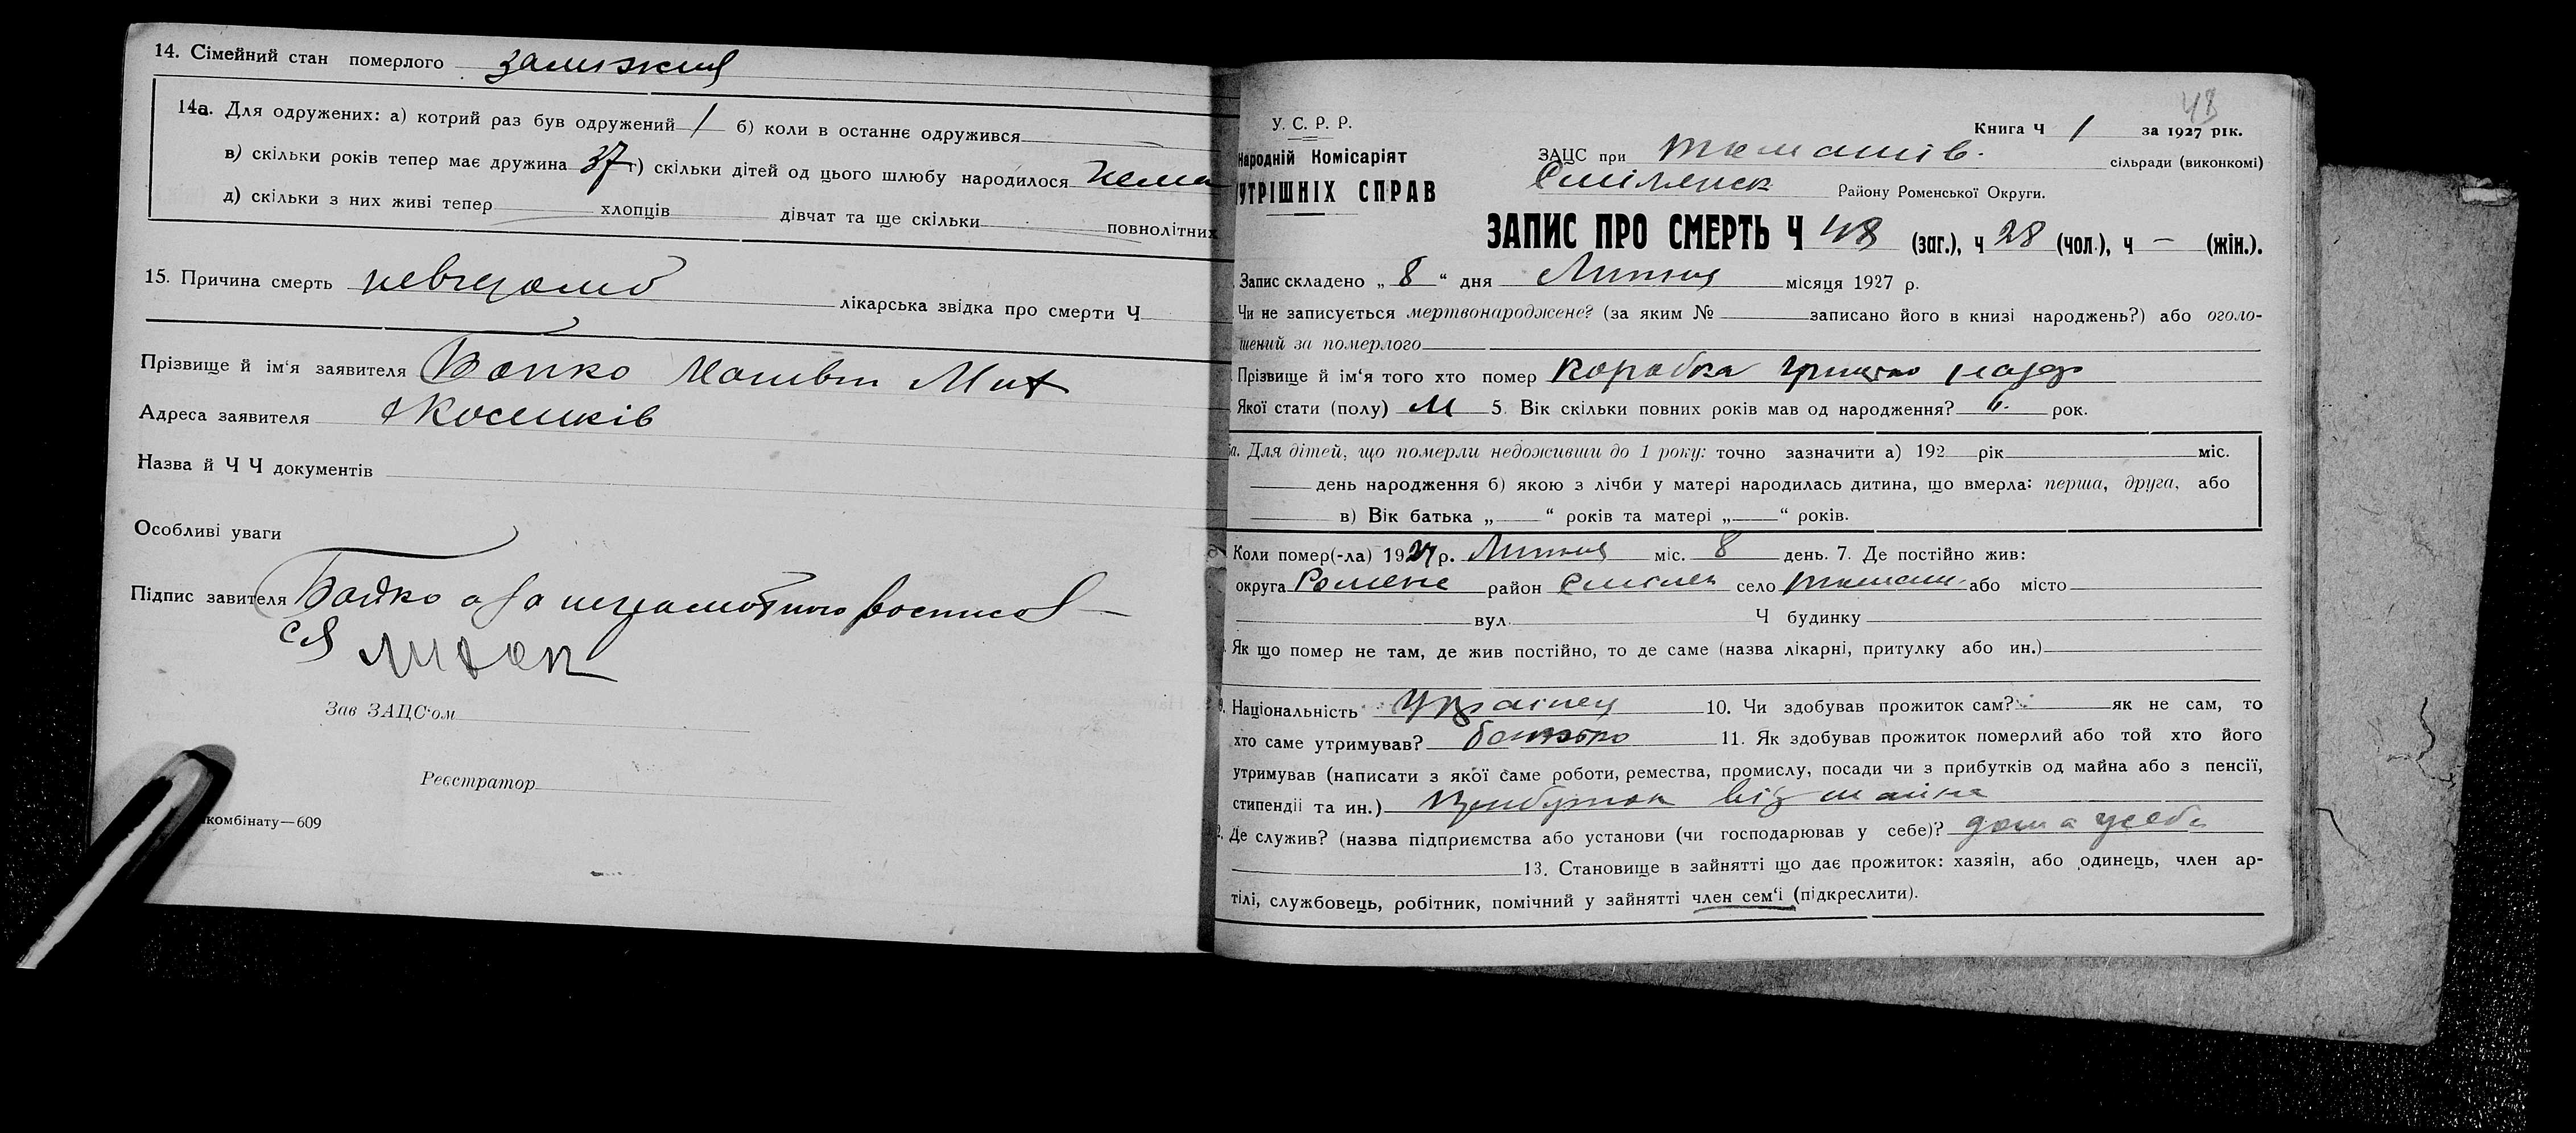 14. Сімейний стан померлого замужня
14а. Для одружених: а) котрий раз був одружений 1 б) коли в останнє одружився
в) скільки років тепер має дружина 37 г) скільки дітей од цього шлюбу народилося нема
д) скільки з них живі тепер хлопців дівчат та ще скільки повнолітних
15. Причина смерть невідомо лікарська звідка про смерти Ч
Прізвище й ім'я заявителя Бойко Матвій Мит
Адреса заявителя
Назва й Ч Ч документів
Особливі уваги
Підпис завителя Бойко а за неграмотного росписал
ся
Зав ЗАЦС'ом
Реєстратор
комбінату—609
48
У. С. Р. Р.
Книга Ч 1 за 1927 рік.
Народній Комісаріят
ЗАЦС при сільради (виконкомі)
УТРІШНІХ СПРАВ
Смілянск Району Роменської Округи.
ЗАПИС ПРО СМЕРТЬ Ч 48 (заг.), ч 28 (чол.), ч — (жін.).
Запис складено „ 8 “ дня Липня місяця 1927 р.
Чи не записується мертвонароджене? (за яким № записано його в книзі народжень?) або оголо-
шений за померлого
Прізвище й ім'я того хто помер Коробка Грицько
Якої стати (полу) М 5. Вік скільки повних років мав од народження? 6. рок.
5а. Для дітей, що померли недоживши до 1 року: точно зазначити а) 192 рік міс.
день народження б) якою з лічби у матері народилась дитина, що вмерла: перша, друга, або
в) Вік батька „ “ років та матері „ “ років.
Коли помер(-ла) 1927 р. Липня міс. 8 день. 7. Де постійно жив:
округа Роменс район Смілян село або місто
вул. Ч будинку
Як що помер не там, де жив постійно, то де саме (назва лікарні, притулку або ин.)
9. Національність Українец 10. Чи здобував прожиток сам? як не сам, то
хто саме утримував? батько 11. Як здобував прожиток померлий або той хто його
утримував (написати з якої саме роботи, ремества, промислу, посади чи з прибутків од майна або з пенсії,
стипендії та ин.) Прибуток від майна
2. Де служив? (назва підприємства або установи (чи господарював у себе)? дома у себе
13. Становище в зайнятті що дає прожиток: хазяін, або одинець, член ар-
тілі, службовець, робітник, помічний у зайнятті член сем'ї (підкреслити).